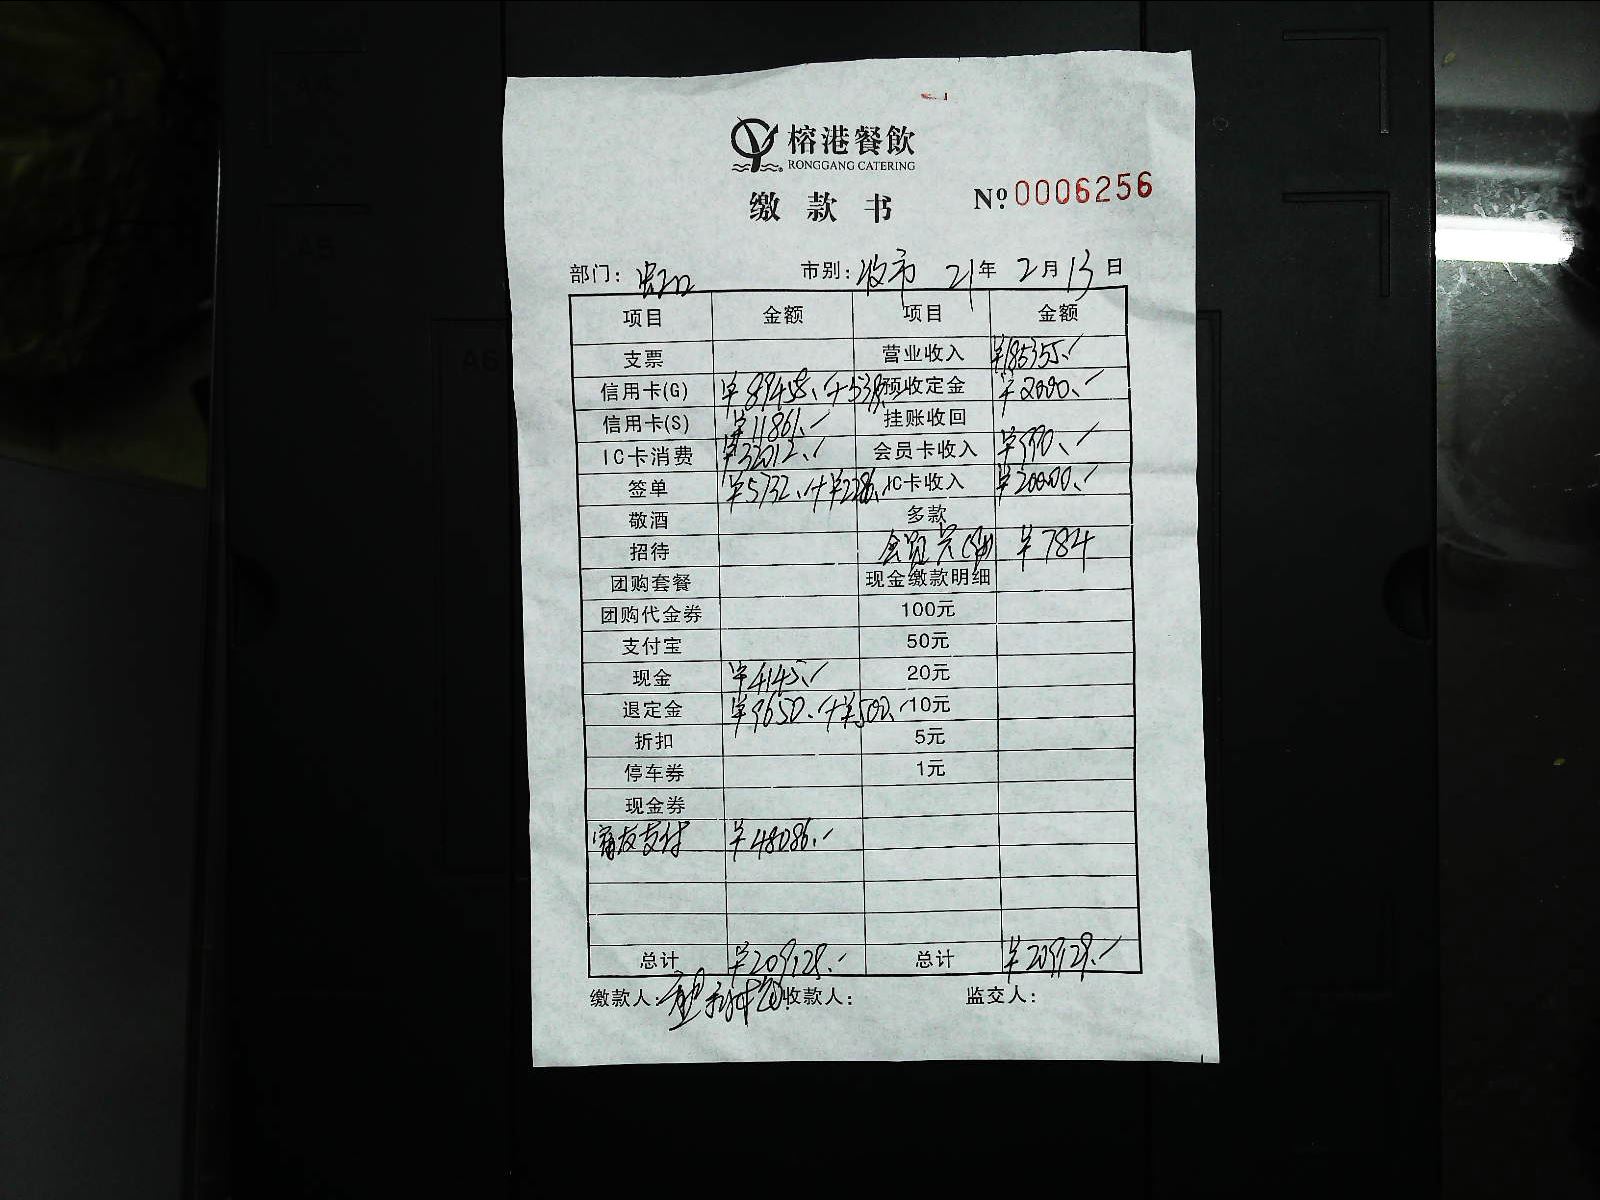 榕港餐飲
RONGGANG CATERING
缴款书 Nº 0006256
部门： 市别：收市 21年 2月 13日
项目 金额 项目 金额
支票 营业收入 ¥185355
信用卡(G) ¥89458 预收定金 ¥2000
信用卡(S) ¥11861 挂账收回
IC卡消费 ¥32012 会员卡收入 ¥990
签单 ¥5732+¥2286 IC卡收入 ¥20000
敬酒 多款
招待 ¥784
团购套餐 现金缴款明细
团购代金券 100元
支付宝 50元
现金 ¥4145 20元
退定金 ¥9650+¥500 10元
折扣 5元
停车券 1元
现金券
富友支付 ¥48086
总计 ¥209129 总计 ¥209129
缴款人： 收款人： 监交人：